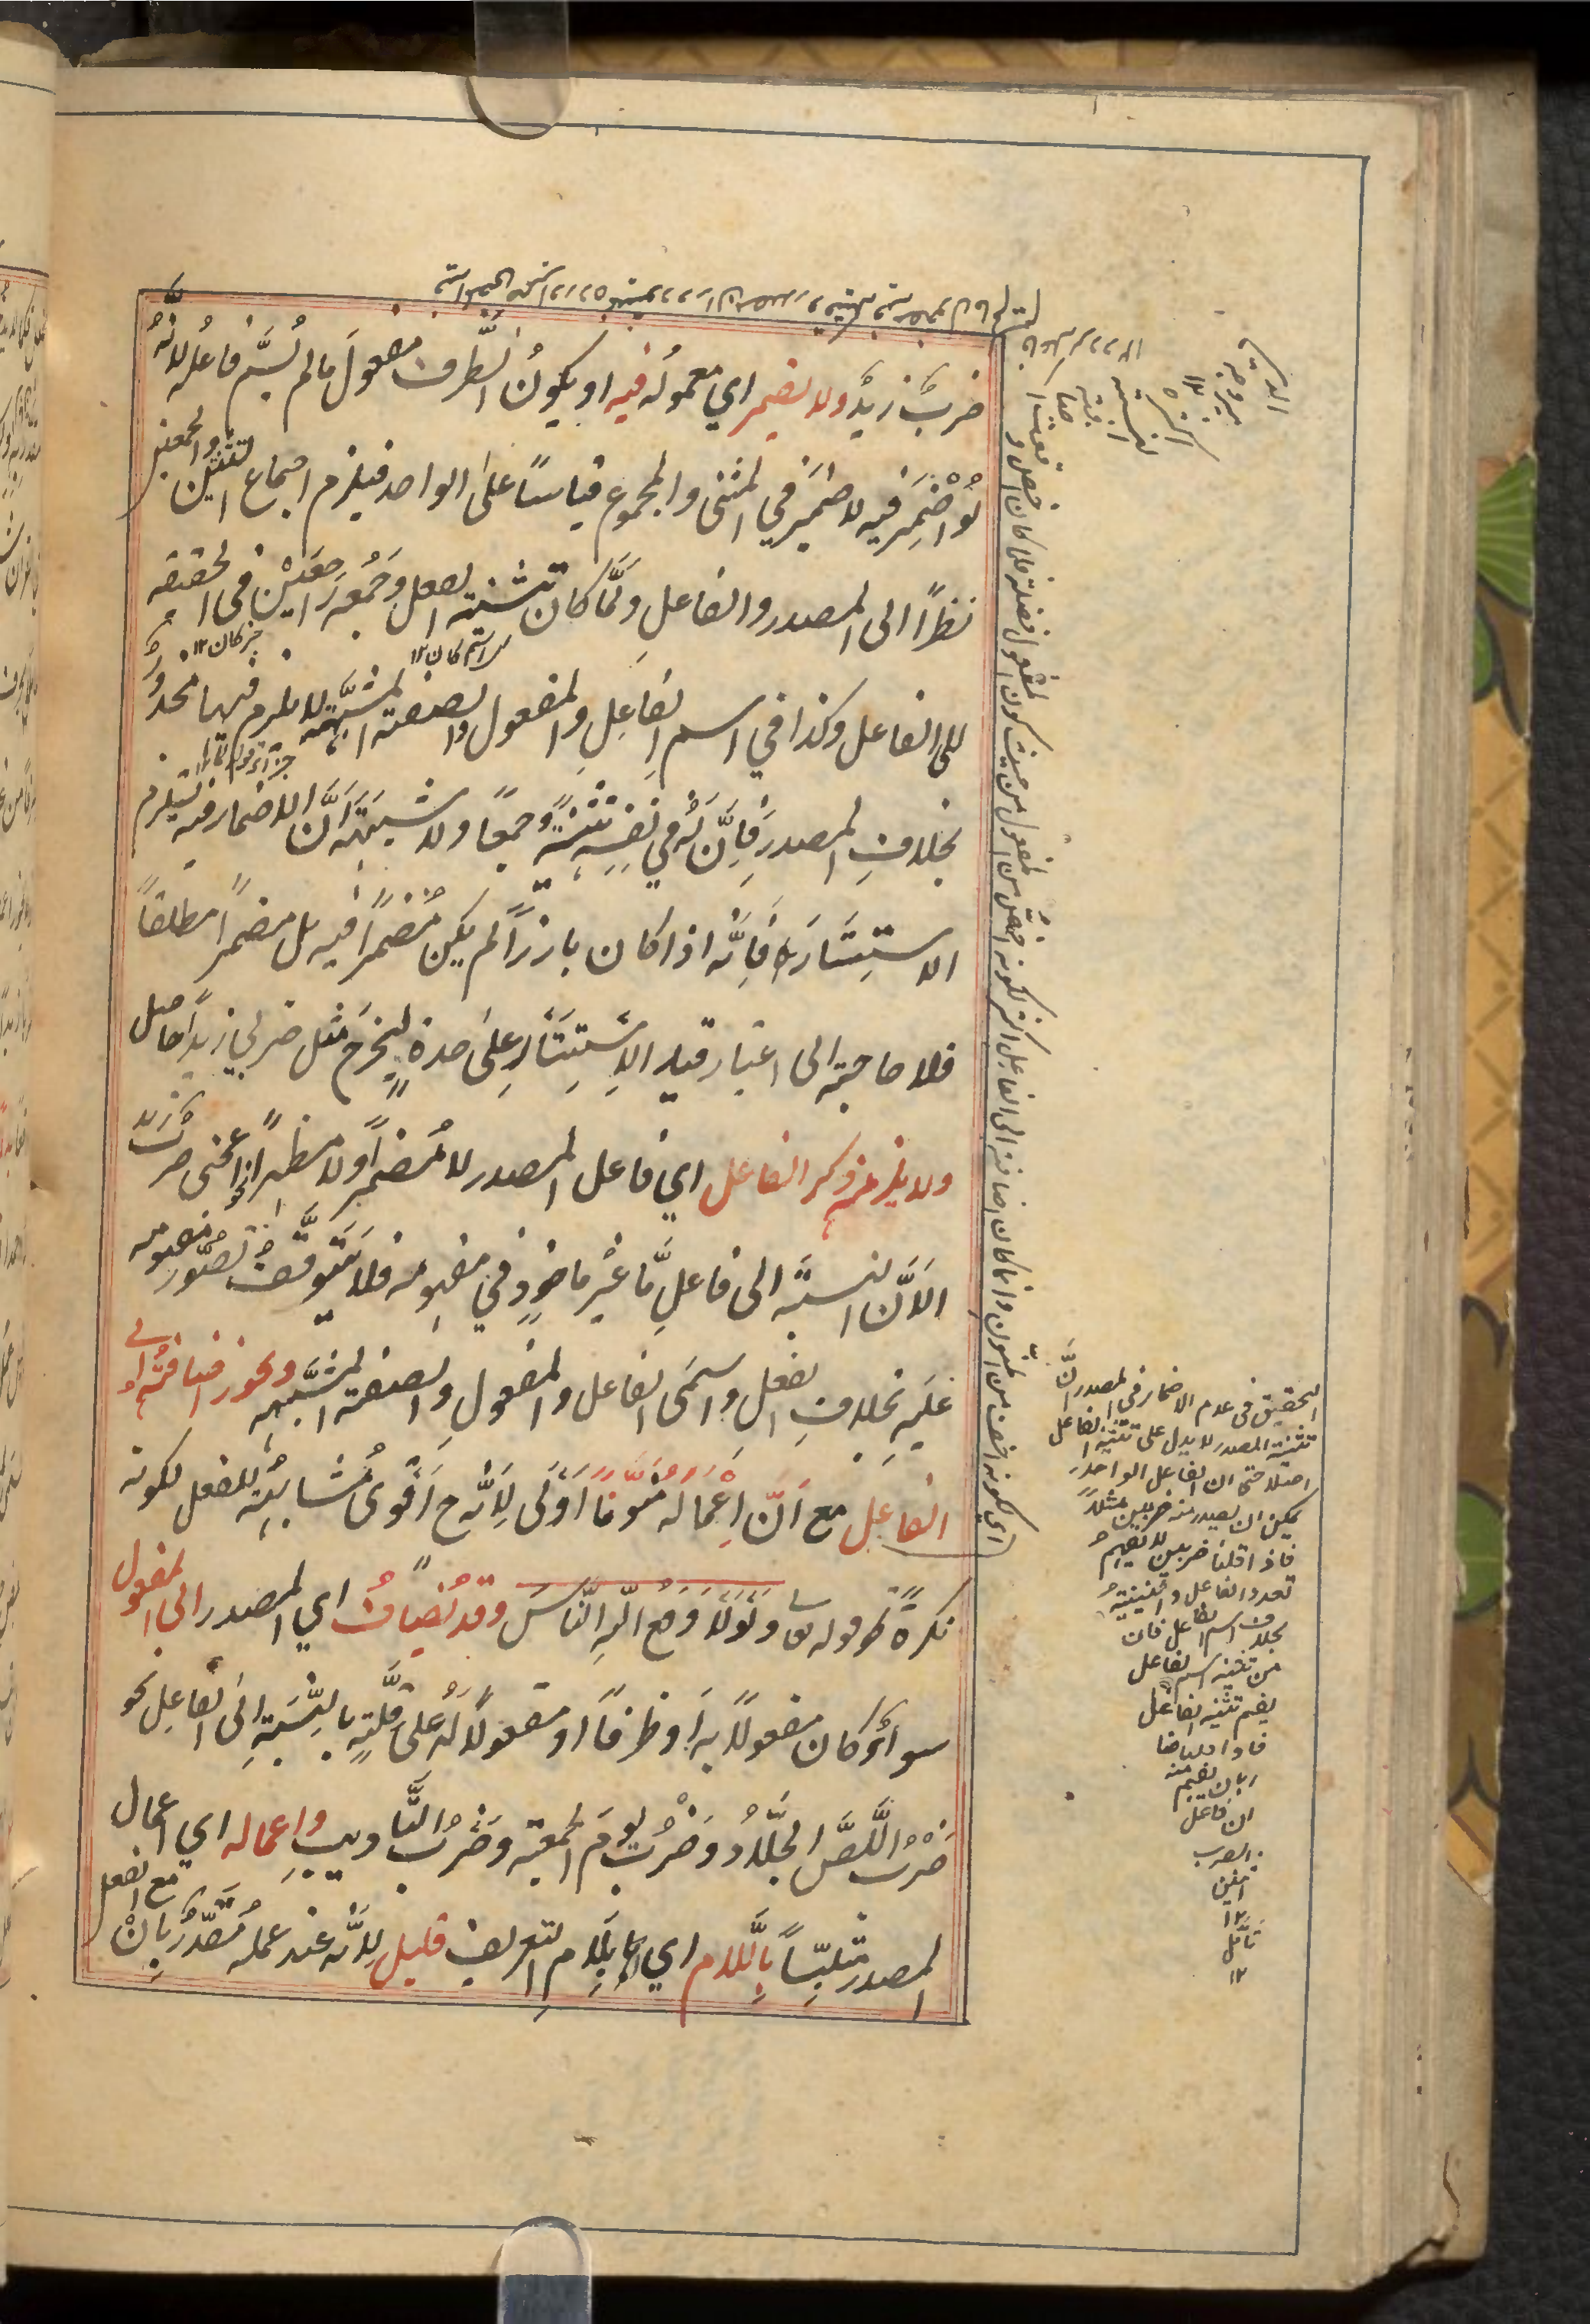 ضربٌ زيدٌ ولا يضمر اي معموله فيه او يكون الظرف مفعول ما لم يسم فاعله لانه
لو اُضْمِرَ فيه لاضمر في المثنى والمجموع قياسًا على الواحد فيلزم اجتماع التثنيتين والجمعين
نظرًا الى المصدر والفاعلِ ولمّا كان تثنية الفعل وجمعه راجعَيْن في الحقيقة
للفاعل وكذا في اسم الفاعلِ والمفعول والصفة المشبّهة لا يلزم فيها محذور
اسم كان ١٢
خبر كان ١٢
بخلافِ المصدر فاِنّ له في نفسه تثنيةً وجمعًا ولا شبهة انّ الاضمار فيه يستلزم
الاستتار فاِنّه اذا كان بارزًا لم يكن مُضمرًا فيه بل مضمرًا مطلقًا
فلا حاجة الى اعتبار قيد الاِستتار على حدةٍ ليخرج مثل ضربي زيدًا حاصل
ولا يلزم ذكر الفاعل اي فاعل المصدر لا مُضمرًا ولا مظهرًا نحو اعجبني ضربٌ زيدًا
لانّ النسبة الى فاعلٍ مّا غير ماخوذٍ في مفهومه فلا يتوقّف تصوّر مفهومه
عليه بخلافِ الفعل واسمى الفاعل والمفعول والصفة المشبّهة ويجوز اضافته الى
الفاعل مع اَنّ اِعماله منوّنًا اَولى لِاَنّه ح اَقوى مُشابهةٍ للفعل لكونه
نكرةً نحو قوله تع ولولا دفع اللهِ النّاسَ وقد يُضاف اي المصدر الى المفعول
سواءٌ كان مفعولًا به او ظرفًا او مفعولًا له على قلّةٍ بالنّسبةِ الى الفاعل نحو
ضربُ اللّصّ الجلّادُ وضربُ يومَ الجمعة وضربُ التّاديبِ واِعماله اي اِعمال
المصدر متلبّسًا بِاللّام اي بلامِ التعريف قليل لِانّه عند عمله مُقدّرٌ بِاَنْ مع الفعل
اي لكونه اخف من المنون وانما كان اضافته الى الفاعل اكثر لكونه اخصّ من المفعول من حيث كون المفعول فضلة فلا كان اخص
التحقيق في عدم الاضمار في المصدر انّ
تثنية المصدر لا يدل على تثنية الفاعل
اصلا حتى ان الفاعل الواحد
يمكن ان يصدر منه ضربين مثلًا
فاذا قلنا ضربين لا يفهم
تعدد الفاعل واثنينيته
بخلاف اسم الفاعل فان
من تثنية اسم الفاعل
يفهم تثنية الفاعل
فاذا قلنا ضا
ربان يفهم منه
ان فاعل
الضرب
اثنين
١٢
تامّل
١٢